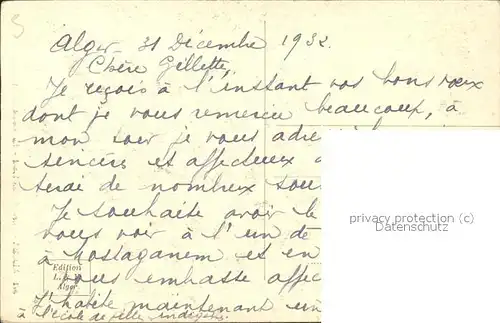 Alger 31 Décembre 1932.
Chère Gillette,
Je reçois à l'instant vos bons vœux
dont je vous remercie beaucoup, à
mon tour je vous
sincères et affectueux
de nombreux
Je souhaite avoir le
vous voir à l'un de
à Mostaganem et en
vous embrasse
J'habite maintenant un
à l'école de filles indigènes.
privacy protection
copyright
Edition
Alger.